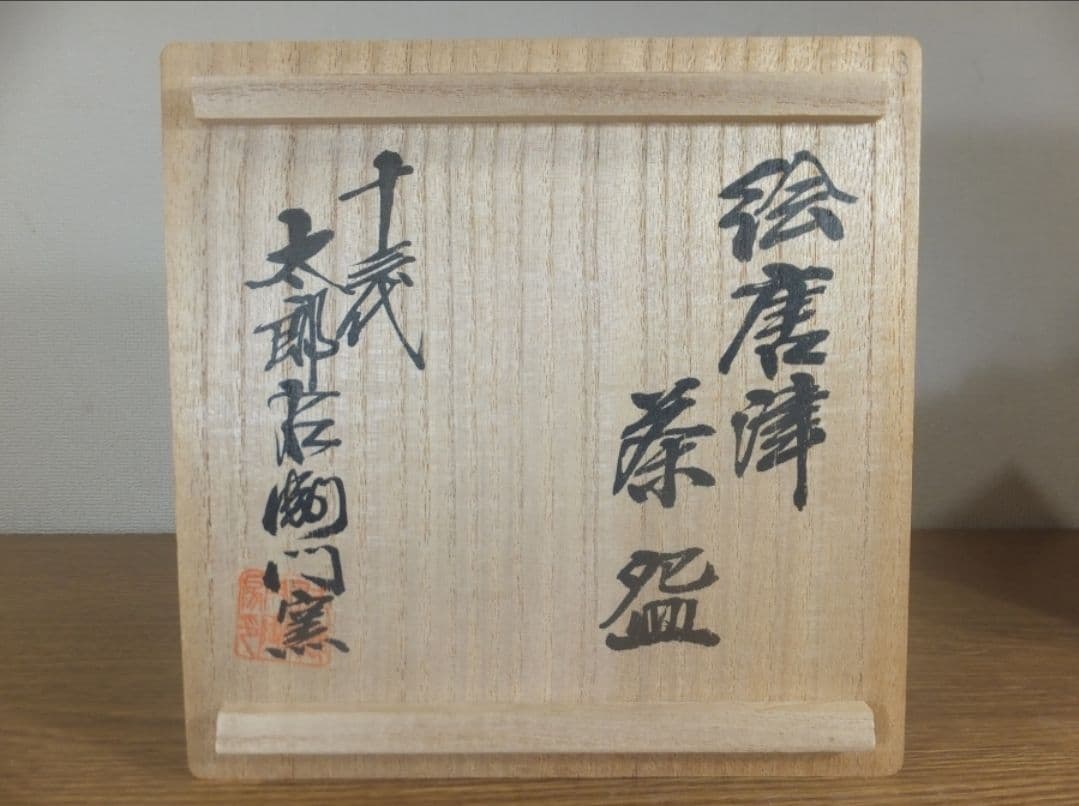 絵唐津
茶盌
十三代
太郎右衛門窯
3